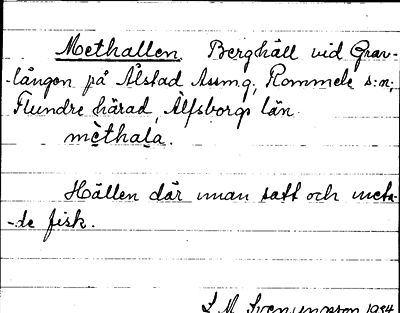 Methallen. Berghäll vid Grav-
-lången på Ålstad Asmg, Rommele s:n;
Flundre härad, Älfsborgs län.
mèthala.
Hällen där man satt och meta-
-de fisk.
L M Svenungsson 1934